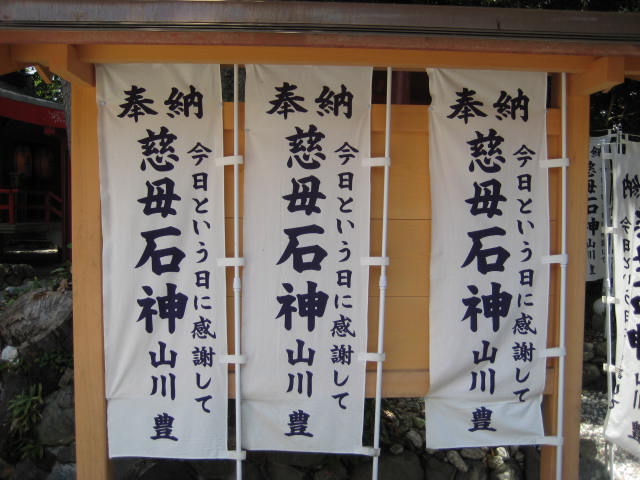 奉納
今日という日に感謝して
慈母石神 山川 豊
奉納
今日という日に感謝して
慈母石神 山川 豊
奉納
今日という日に感謝して
慈母石神 山川 豊